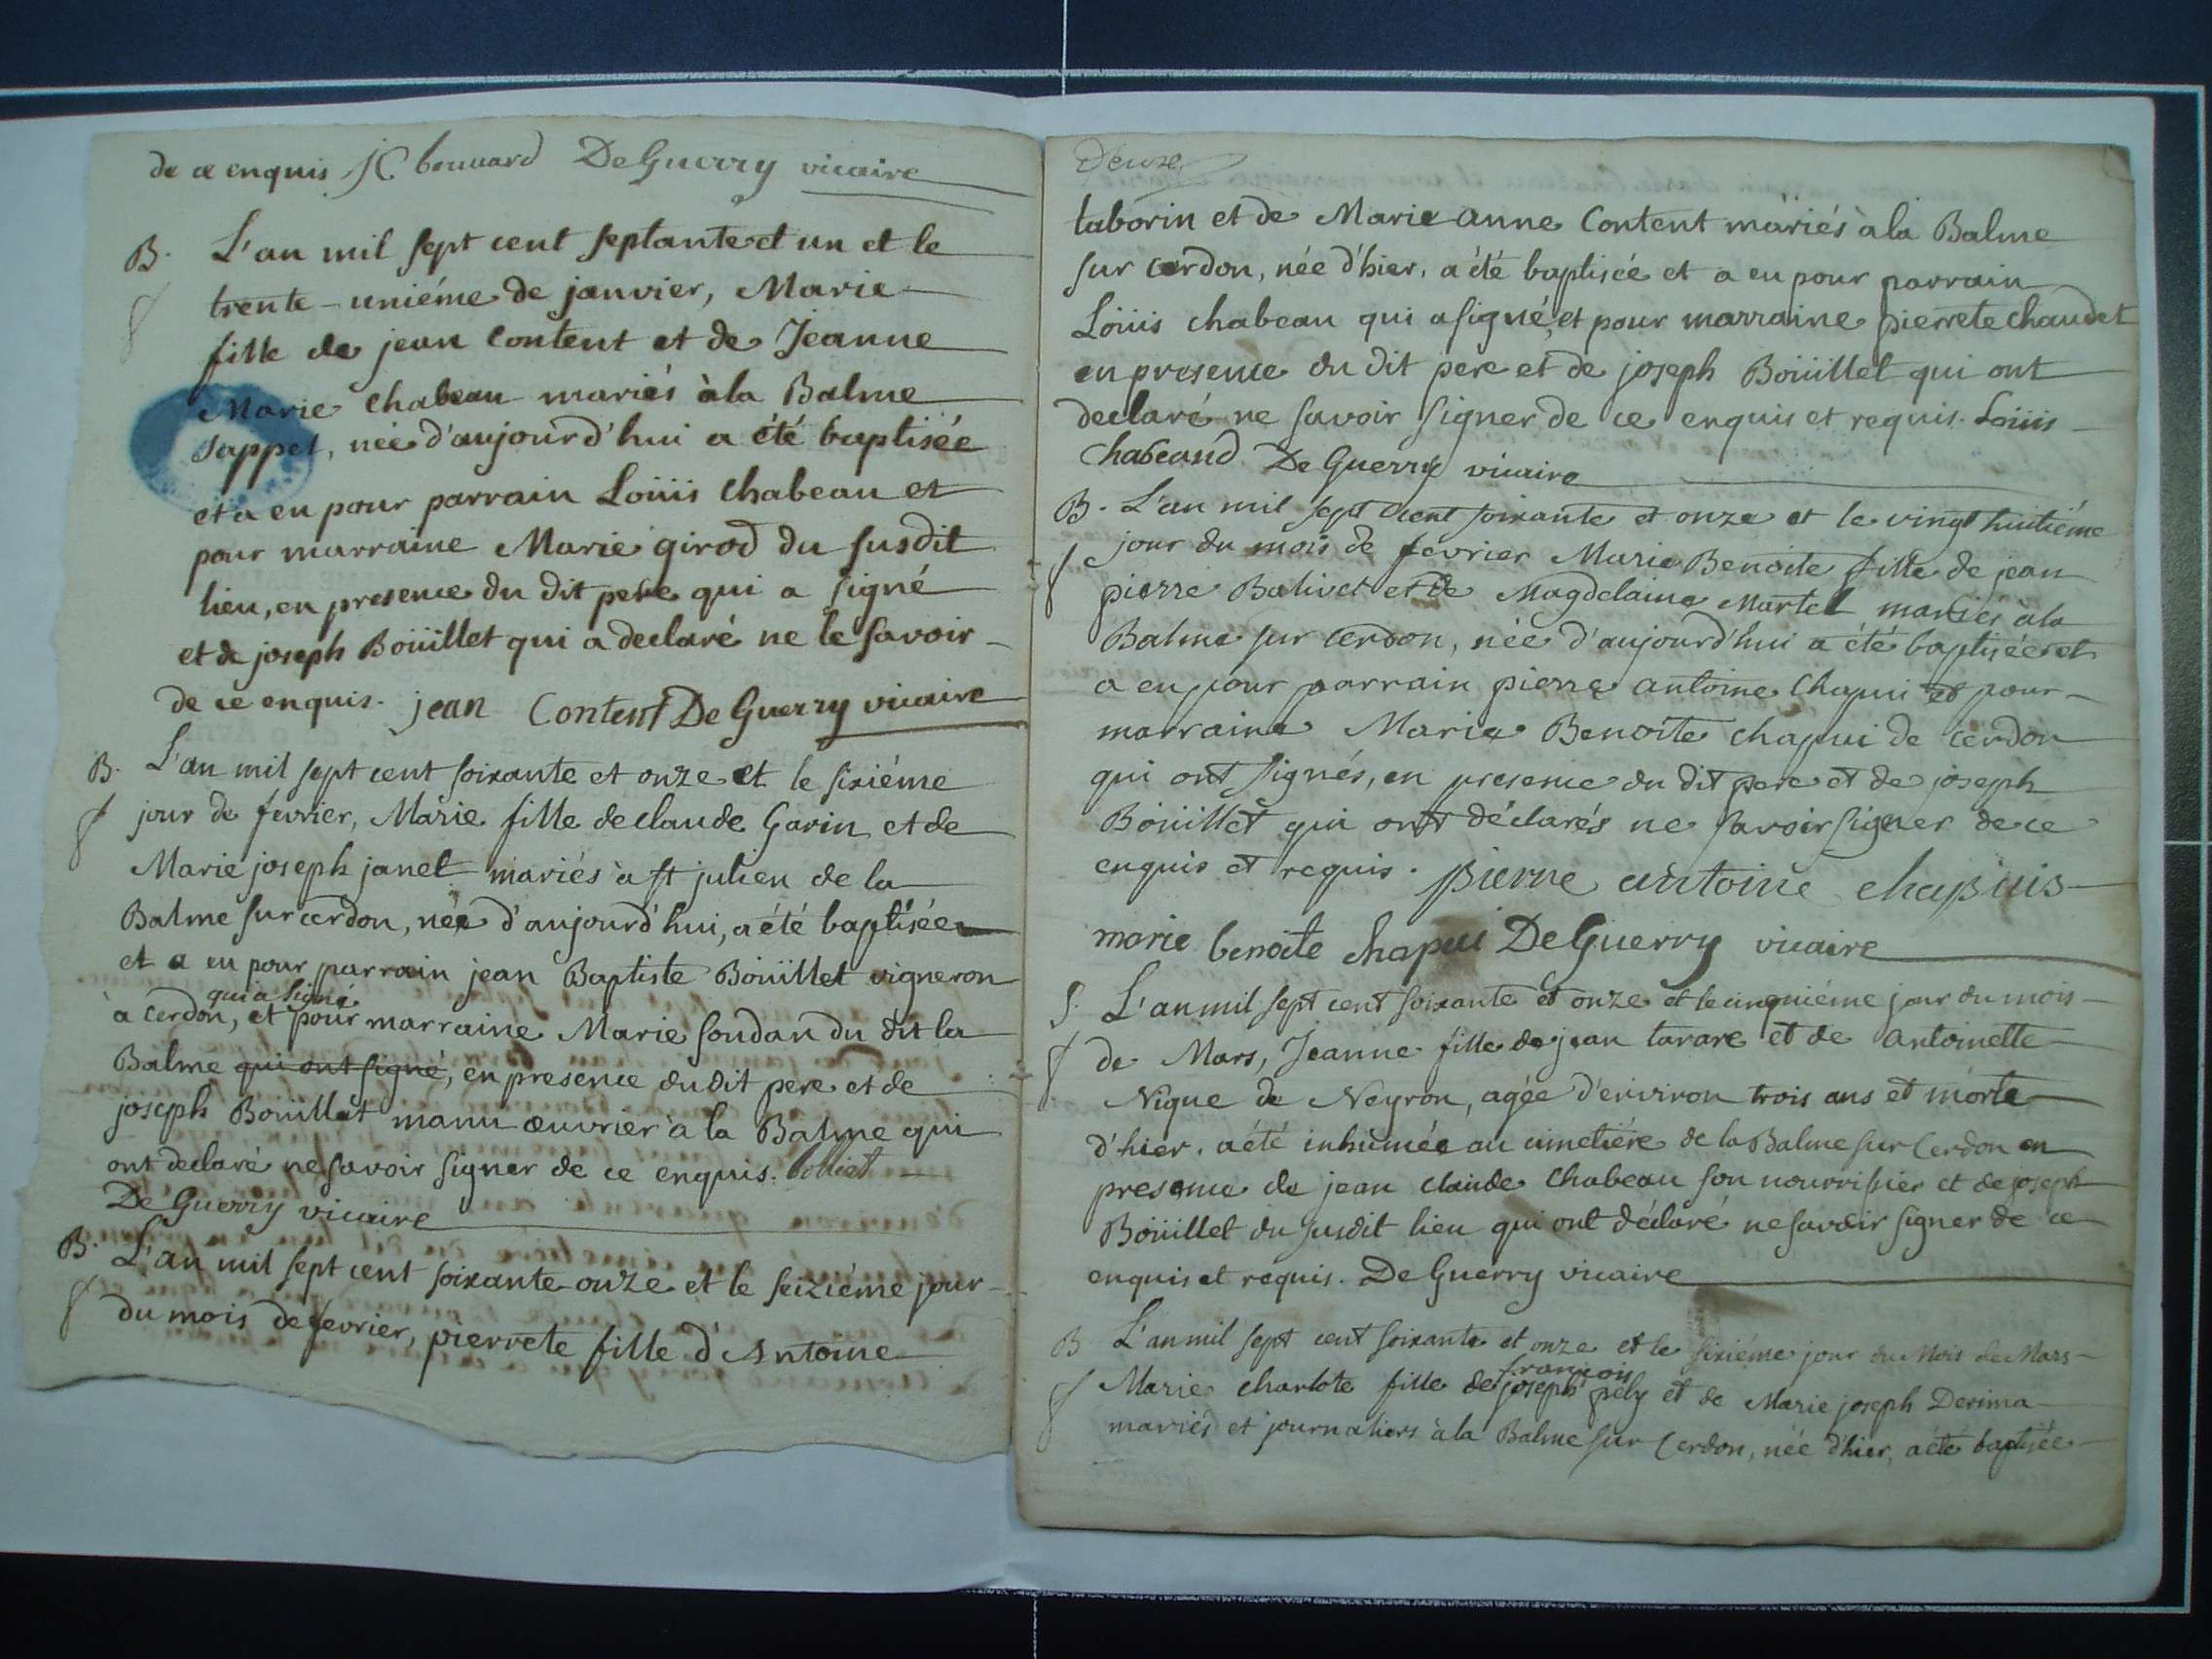 de ce enquis JC bouuard De Guerry vicaire
B. L'an mil sept cent septante et un et le
trente-uniéme de janvier, Marie
fille de jean Content et de Jeanne
Marie Chabeau mariés à la Balme
Sappel, née d'aujourd'hui a été baptisée
et a eu pour parrain Loüis Chabeau et
pour marraine Marie girod du susdit
lieu, en presence du dit pere qui a signé
et de joseph Boüillet qui a declaré ne le savoir
de ce enquis. jean Content De Guerry vicaire
B. L'an mil sept cent soixante et onze et le sixiéme
jour de fevrier, Marie fille de claude Gavin et de
Marie joseph janet mariés à st julien de la
Balme sur cerdon, née d'aujourd'hui, a été baptisée
et a eu pour parrain jean Baptiste Boüillet vigneron
qui a signé
à Cerdon, et pour marraine Marie soudan du dit la
Balme qui ont signé, en presence du dit pere et de
joseph Boüillet manu œuvrier à la Balme qui
ont declaré ne savoir signer de ce enquis. bolliet
De Guerry vicaire
B. L'an mil sept cent soixante onze et le seiziéme jour
du mois de fevrier, pierrete fille d'Antoine
Deuxe
taborin et de Marie anne Content mariés à la Balme
sur cerdon, née d'hier, a été baptisée et a eu pour parrain
Loüis chabeau qui a signé, et pour marraine pierrete chaudet
en presence du dit pere et de joseph Boüillet qui ont
declaré ne savoir signer de ce enquis et requis. Loüis
Chabeaud De Guerry vicaire
B. L'an mil sept cent soixante et onze et le vingt huitiéme
jour du mois de fevrier Marie Benoite fille de jean
pierre Balivet et de Magdelaine Martel mariés à la
Balme sur cerdon, née d'aujourd'hui a été baptisée et
a eu pour parrain pierre antoine Chapui et pour
marraine Marie Benoite chapui de cerdon
qui ont signés, en presence du dit pere et de joseph
Boüillet qui ont déclarés ne savoir signer de ce
enquis et requis. pierre antoine chapuis
marie benoite chapui De Guerry vicaire
S. L'an mil sept cent soixante et onze et le cinquiéme jour du mois
de Mars, Jeanne fille de jean tarare et de Antoinette
Nique de Neyron, agée d'environ trois ans et morte
d'hier, a été inhumée au cimetiére de la Balme sur Cerdon en
presence de jean claude Chabeau son nourrissier et de joseph
Boüillet du susdit lieu qui ont déclaré ne savoir signer de ce
enquis et requis. De Guerry vicaire
B L'an mil sept cent soixante et onze et le sixiéme jour du Mois de Mars
françois
Marie charlote fille de joseph pely et de Marie joseph Derima
mariés et journaliers à la Balme sur Cerdon, née d'hier, a été baptisée